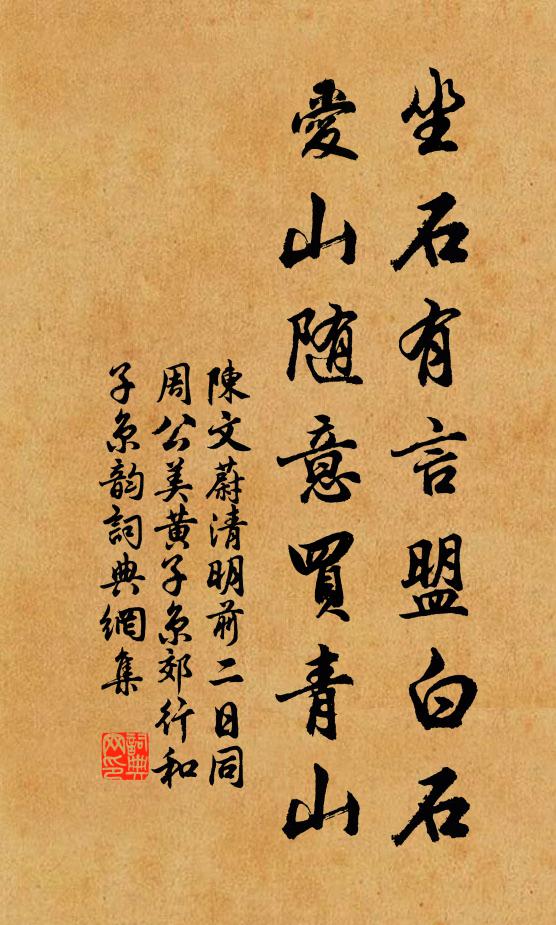 坐石有言盟白石
愛山随意買青山
陳文蔚清明前二日同
周公美黄子京郊行和
子京韵詞典網集
詞典
网印